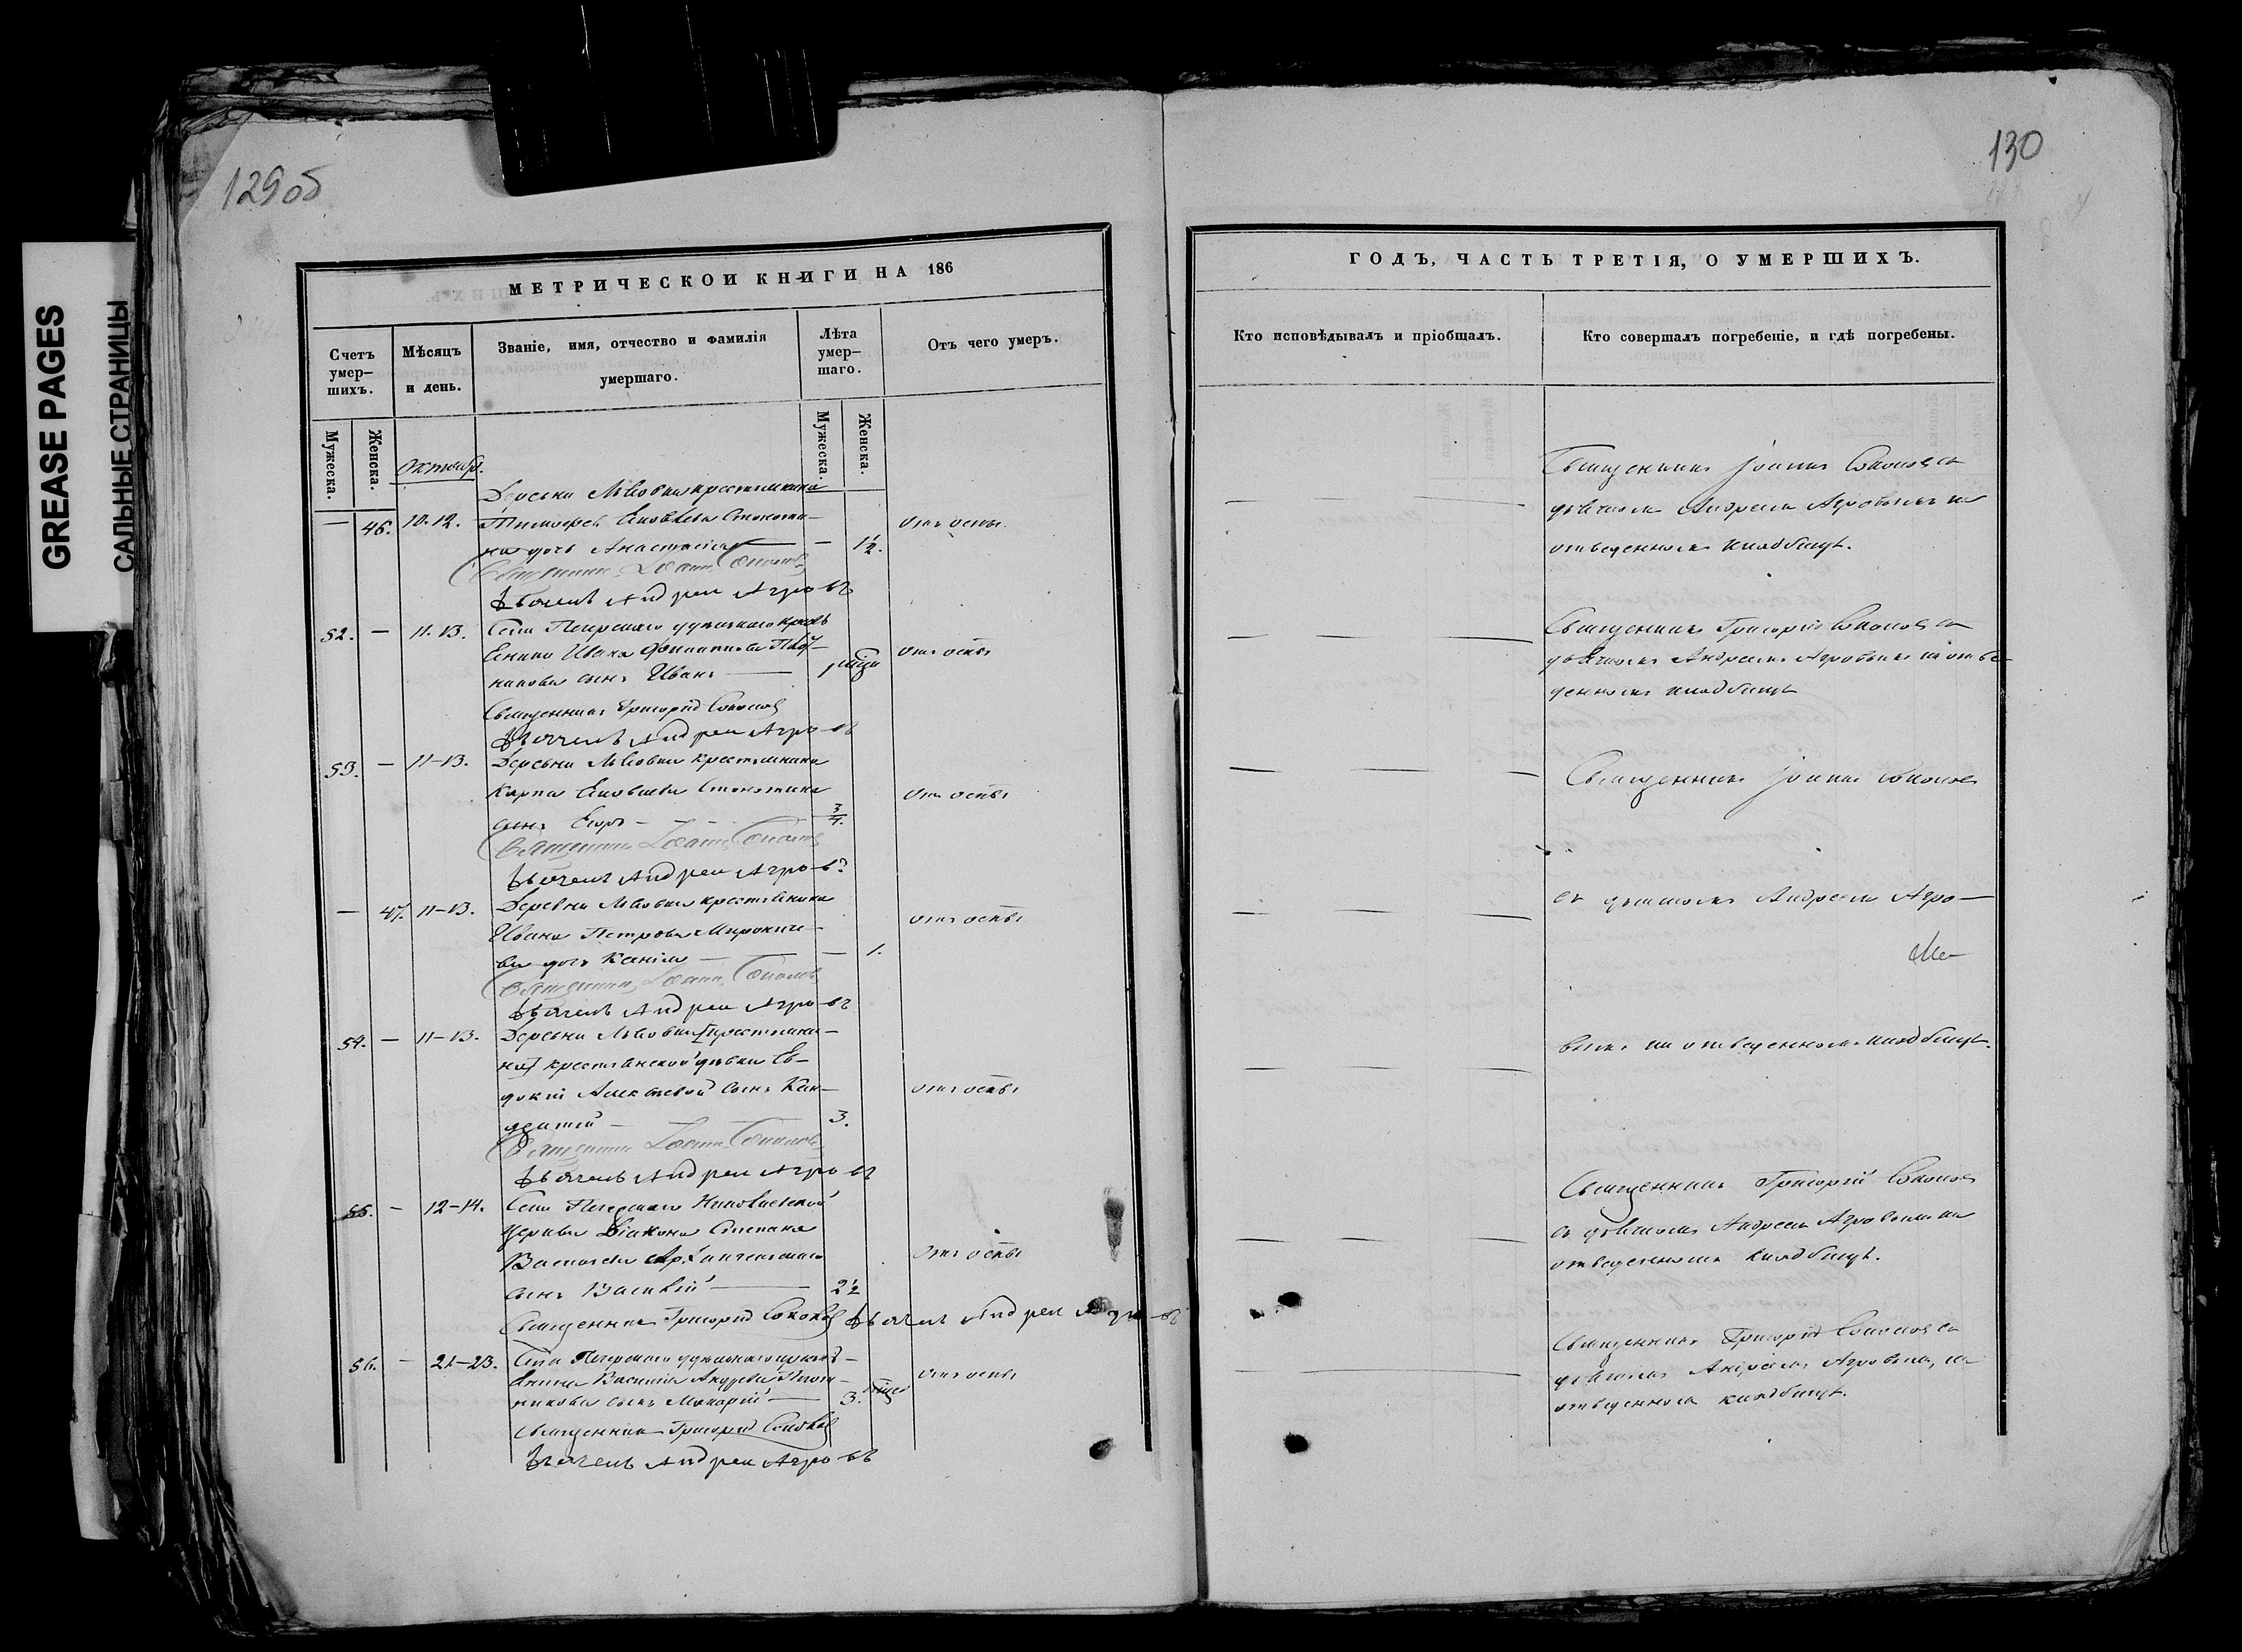 GREASE PAGES
САЛЬНЫЕ СТРАНИЦЫ
129об
МЕТРИЧЕСКОЙ КНИГИ НА 186
Счетъ умер-
шихъ.
Мѣсяцъ
и день.
Званіе, имя, отчество и фамилія
умершаго.
Лѣта
умер-
шаго.
Отъ чего умеръ.
Мужеска.
Женска.
Мужеска.
Женска.
Октябр.
Деревни крестьянина
— 46. 10. 12. Тимофея Яковлева отъ оспы
дочь Анастасія — — 1½.
Священникъ Іоаннъ Соколовъ
Дьячекъ Андрей Агровъ
52. — 11. 13. Села удѣльнаго кресть
янина Ивана Филиппова отъ оспы
никова сынъ Иванъ — 1
Священникъ Григорій Соколовъ
Дьячекъ Андрей Агровъ
53. — 11-13. Деревни крестьянина
Карпа Яковлева отъ оспы
сынъ Егоръ — ¾.
Священникъ Іоаннъ Соколовъ
Дьячекъ Андрей Агровъ
— 47. 11-13. Деревни крестьянина
Ивана Петрова отъ оспы
ва дочь Ксенія — — 1.
Священникъ Іоаннъ Соколовъ
Дьячекъ Андрей Агровъ
54. — 11-13. Деревни
крестьянской дѣвки Ев-
докіи Алексѣевой сынъ отъ оспы
— 3.
Священникъ Іоаннъ Соколовъ
Дьячекъ Андрей Агровъ
55. — 12-14. Села Николаевской
церкви Діакона Степана
Васильева отъ оспы
сынъ Василій — 2½
Священникъ Григорій Соколовъ Дьячекъ Андрей Агровъ
56. — 21-23. Села удѣльнаго кресть-
янина Василія Андреева отъ оспы
никова сынъ Макарій — 3.
Священникъ Григорій Соколовъ
Дьячекъ Андрей Агровъ
130
ГОДЪ, ЧАСТЬ ТРЕТІЯ, О УМЕРШИХЪ.
Кто исповѣдывалъ и пріобщалъ.
Кто совершалъ погребеніе, и гдѣ погребены.
Священникъ Іоаннъ Соколовъ съ
дьячкомъ Андреемъ Агровымъ на
отведенномъ кладбищѣ.
Священникъ Григорій Соколовъ съ
дьячкомъ Андреемъ Агровымъ на отве-
денномъ кладбищѣ
Священникъ Іоаннъ Соколовъ
съ дьячкомъ Андреемъ Агро-
вымъ на отведенномъ кладбищѣ.
Священникъ Григорій Соколовъ
съ дьячкомъ Андреемъ Агровымъ на
отведенномъ кладбищѣ.
Священникъ Григорій Соколовъ съ
дьячкомъ Андреемъ Агровымъ, на
отведенномъ кладбищѣ.